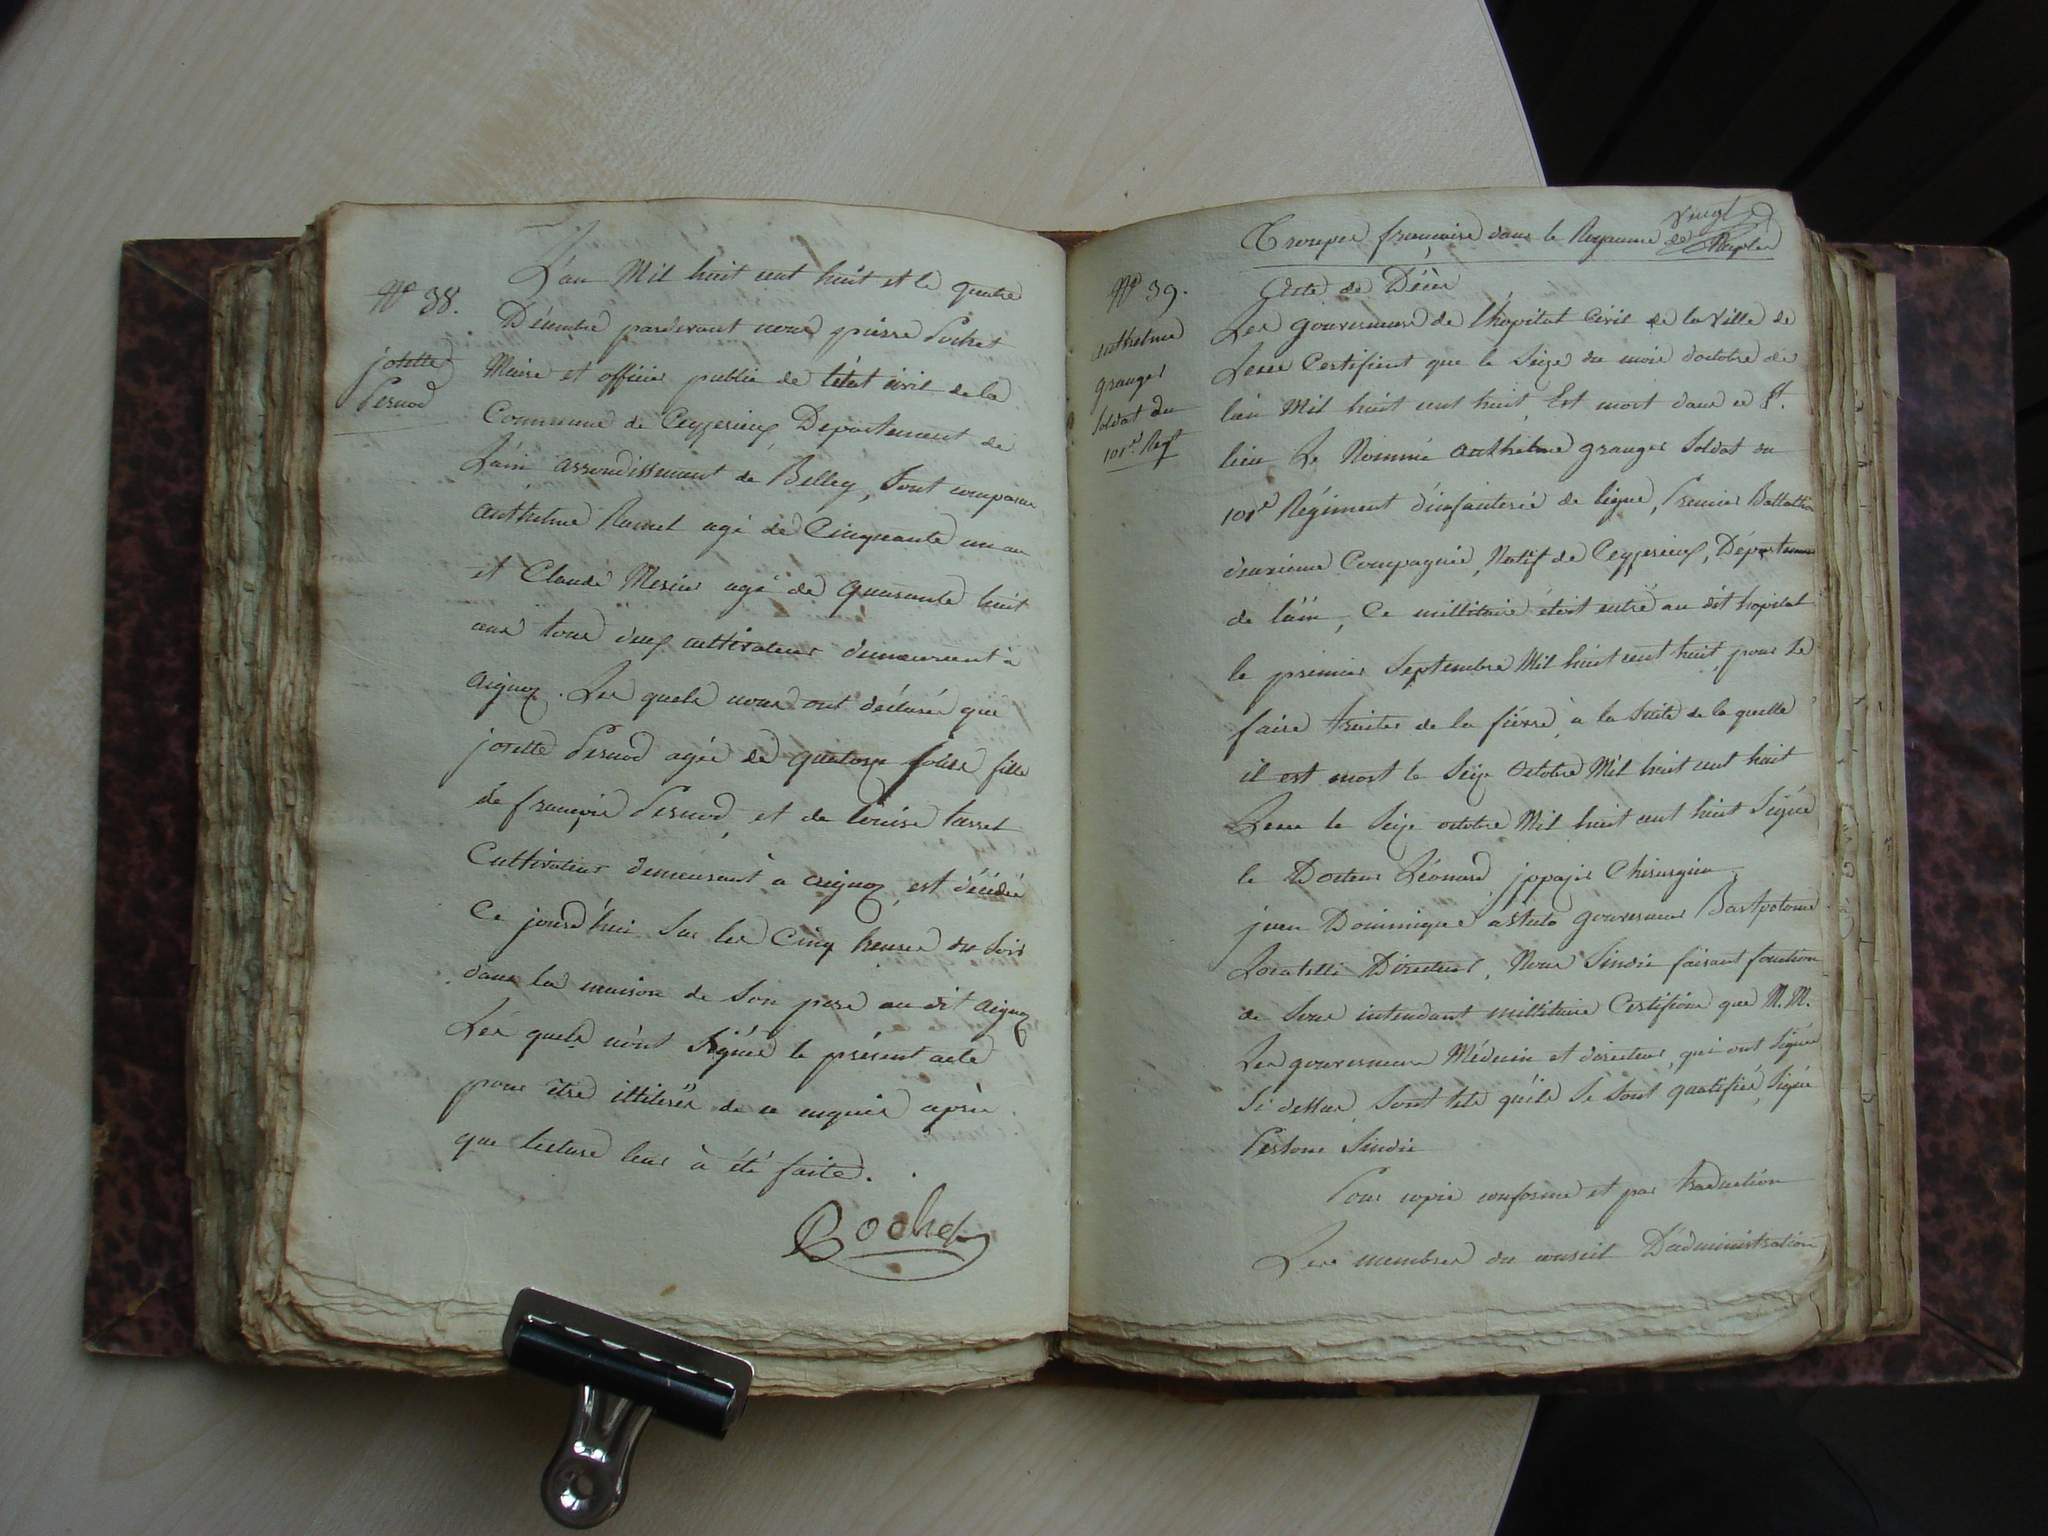 N° 38.
josette
Pernod
L'an Mil huit cent huit et le quatre
Décembre pardevant nous pierre Pochet
Maire et officier public de l'état civil de la
Commune de Ceyzerieux, Departement de
L'ain arrondissement de Belley, Sont comparu
anthelme Ramel agé de Cinquante un an
et Claude Mercier agé de quarante huit
ans tous deux cultivateur demeurent à
aignoz. Les quels nous ont déclaré que
josette Pernod agée de quatorze fille
de françois Pernod, et de louise tarret
Cultivateur demeurant à aignoz, est décédée
Ce jourd'hui Sur les Cinq heures du Soir
dans la maison de Son pere au dit aignoz
Les quels n'ont Signés le présent acte
pour être illiterés de ce enquis après
que lecture leur à été faite.
Pochet
vingt
Troupes françaises dans le Royaume de Naples
N° 39.
anthelme
granger
Soldat du
101e Regt
Acte de Décès
Les gouverneurs de l'hopital Civil de la ville de
Certifient que le Seize du mois d'octobre de
l'an Mil huit cent huit, Est mort dans ce St.
lieu Le Nommé anthelme granger Soldat du
101e Régiment d'infanterie de ligne, Premier Battallion
deuxieme Compagnie, Natif de Ceyzerieux, Département
de l'ain, Ce millitaire étoit entré au dit hopital
le premier Septembre Mil huit cent huit, pour Se
faire traiter de la fiévre à la Suite de la quelle
il est mort le Seize Octobre Mil huit cent huit
le Seize octobre Mil huit cent huit Signé
le Docteur Léonard Chirurgien
jean Dominique astuto gouverneur Bartpolome
Locatelli Directeur, Nous Sindic faisant fonction
de Sous intendant millitaire Certifions que M.M.
Les gouverneurs Médecin et directeur, qui ont Signés
Si dessus Sont tels qu'ils Se Sont qualifiés, Signé
Sindic
Pour copie conforme et par traduction
Les membres du conseil D'administration